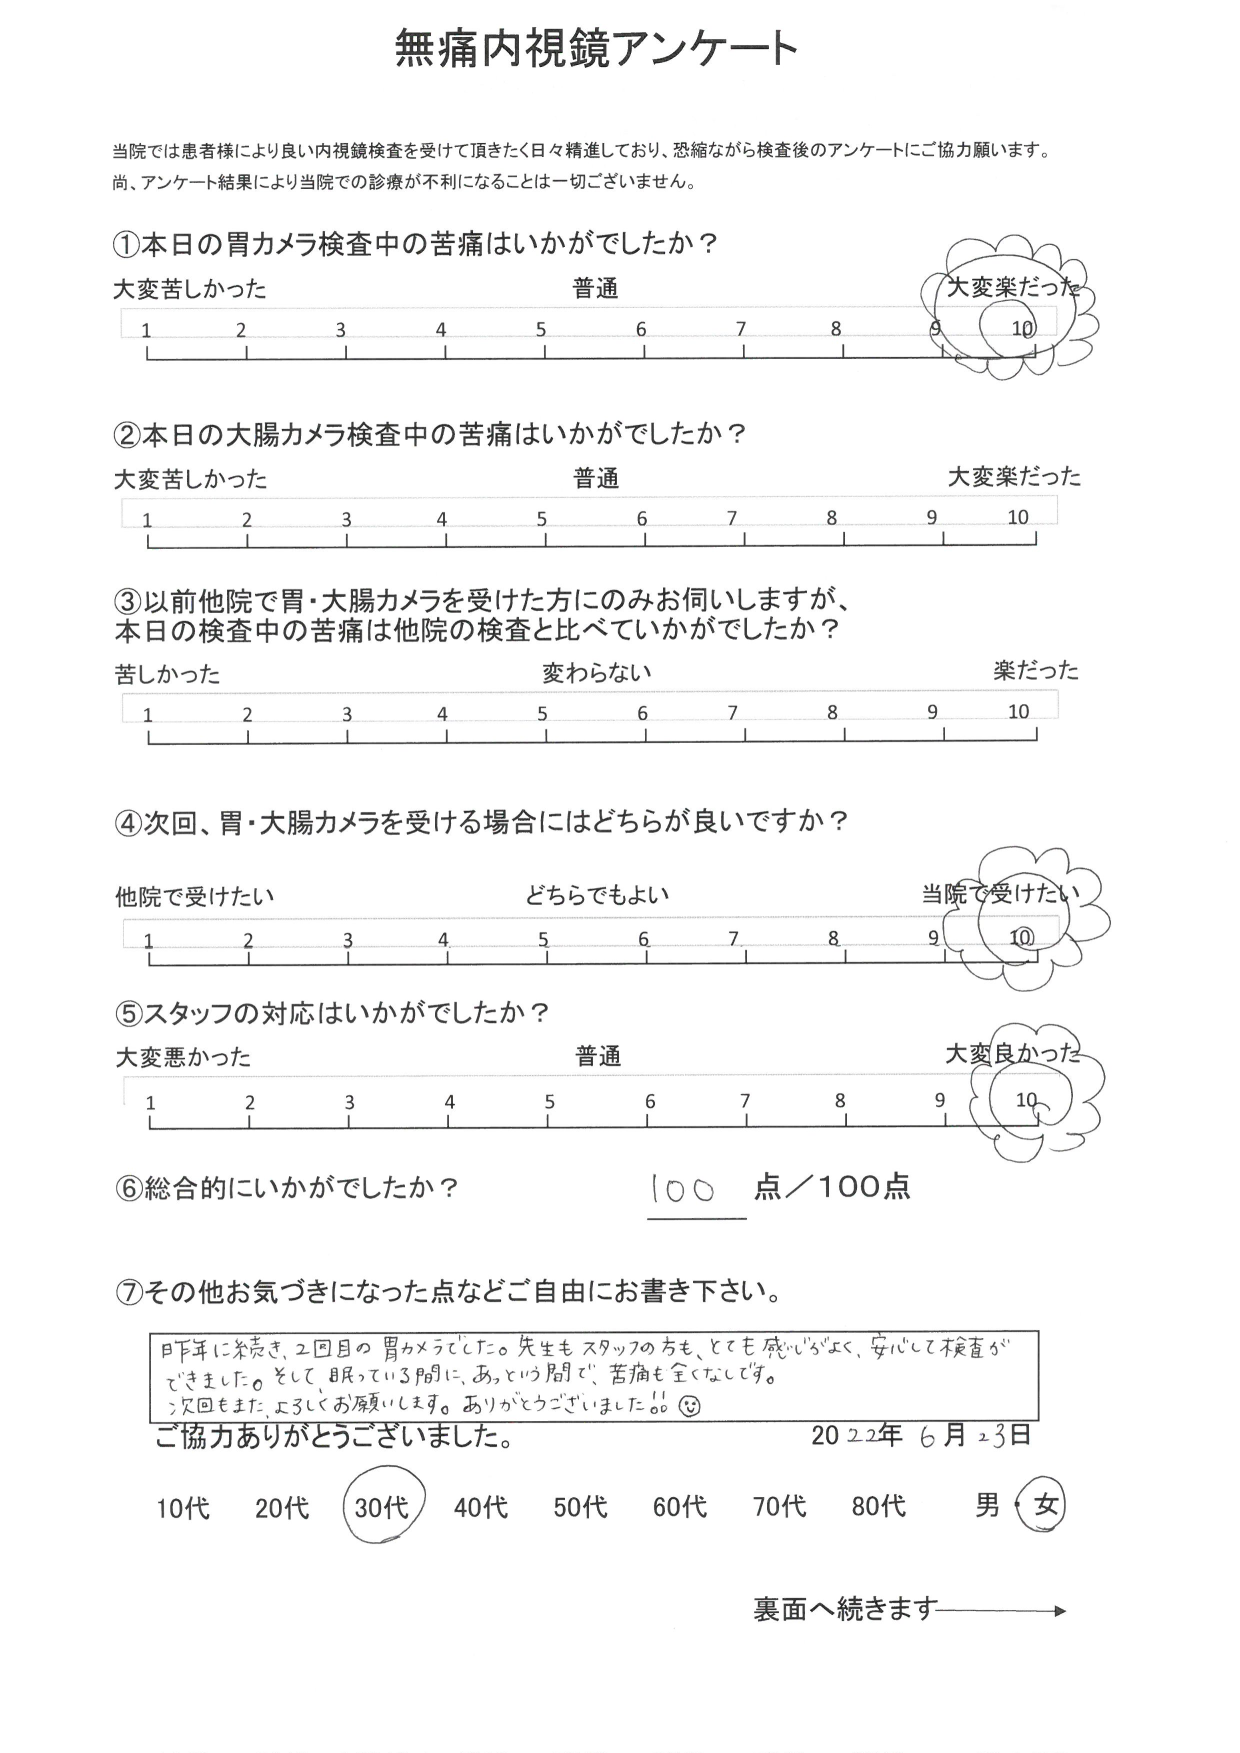 無痛内視鏡アンケート
当院では患者様により良い内視鏡検査を受けて頂きたく日々精進しており、恐縮ながら検査後のアンケートにご協力願います。
尚、アンケート結果により当院での診療が不利になることは一切ございません。
①本日の胃カメラ検査中の苦痛はいかがでしたか？
大変苦しかった 普通 大変楽だった
1 2 3 4 5 6 7 8 9 10
②本日の大腸カメラ検査中の苦痛はいかがでしたか？
大変苦しかった 普通 大変楽だった
1 2 3 4 5 6 7 8 9 10
③以前他院で胃・大腸カメラを受けた方にのみお伺いしますが、
本日の検査中の苦痛は他院の検査と比べていかがでしたか？
苦しかった 変わらない 楽だった
1 2 3 4 5 6 7 8 9 10
④次回、胃・大腸カメラを受ける場合にはどちらが良いですか？
他院で受けたい どちらでもよい 当院で受けたい
1 2 3 4 5 6 7 8 9 10
⑤スタッフの対応はいかがでしたか？
大変悪かった 普通 大変良かった
1 2 3 4 5 6 7 8 9 10
⑥総合的にいかがでしたか？ 100 点／100点
⑦その他お気づきになった点などご自由にお書き下さい。
昨年に続き、2回目の胃カメラでした。先生もスタッフの方も、とても感じがよく、安心して検査が
できました。そして、眠っている間に、あっという間で、苦痛も全くなしです。
次回もまた、よろしくお願いします。ありがとうございました!!☺
ご協力ありがとうございました。 2022年 6月23日
10代 20代 30代 40代 50代 60代 70代 80代 男・女
裏面へ続きます